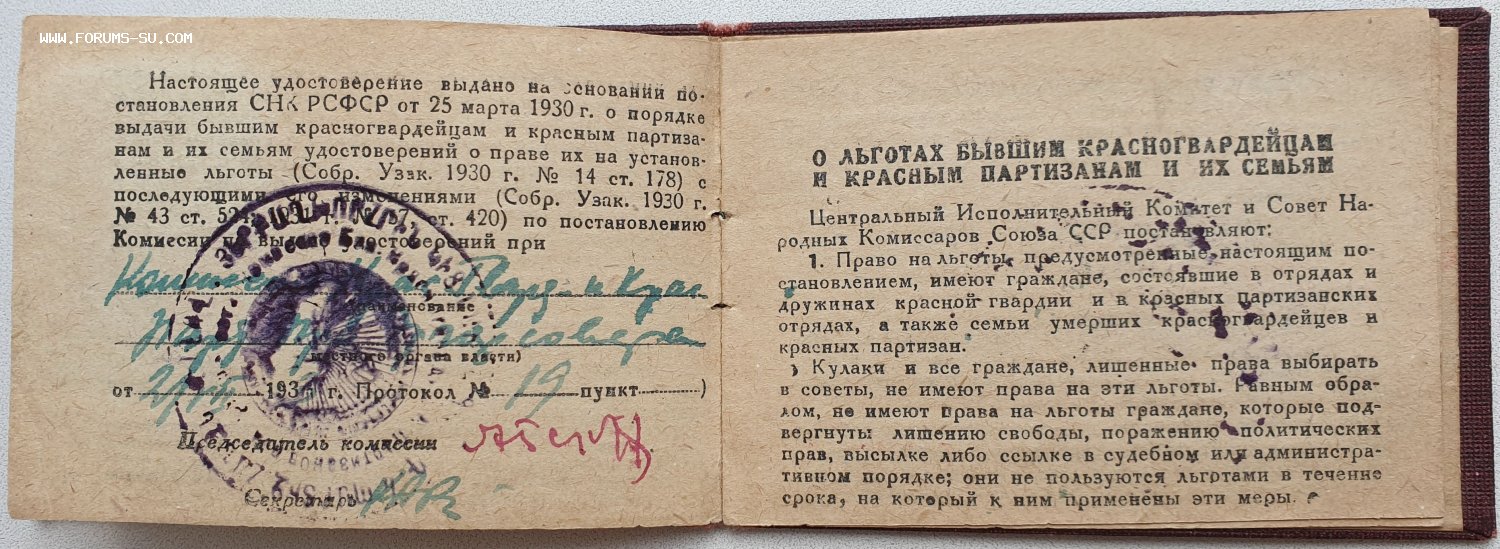 WWW.FORUMS-SU.COM
Настоящее удостоверение выдано на основании по-
становления СНК РСФСР от 25 марта 1930 г. о порядке
выдачи бывшим красногвардейцам и красным партиза-
нам и их семьям удостоверений о праве их на установ-
ленные льготы (Собр. Узак. 1930 г. № 14 ст. 178) с
последующими его изменениями (Собр. Узак. 1930 г.
№ 43 ст. 524, 1931 г. № 57 ст. 420) по постановлению
Комиссии по выдаче Удостоверений при
наименование
местного органа власти)
от 193 г. Протокол № 19 пункт )
Председатель комиссии
Секретарь
О ЛЬГОТАХ БЫВШИМ КРАСНОГВАРДЕЙЦАМ
И КРАСНЫМ ПАРТИЗАНАМ И ИХ СЕМЬЯМ
Центральный Исполнительный Комитет и Совет На-
родных Комиссаров Союза ССР постановляют:
1. Право на льготы, предусмотренные настоящим по-
становлением, имеют граждане, состоявшие в отрядах и
дружинах красной гвардии и в красных партизанских
отрядах, а также семьи умерших красногвардейцев и
красных партизан.
Кулаки и все граждане, лишенные права выбирать
в советы, не имеют права на эти льготы. Равным обра-
зом, не имеют права на льготы граждане, которые под-
вергнуты лишению свободы, поражению политических
прав, высылке либо ссылке в судебном или администра-
тивном порядке; они не пользуются льготами в течение
срока, на который к ним применены эти меры.